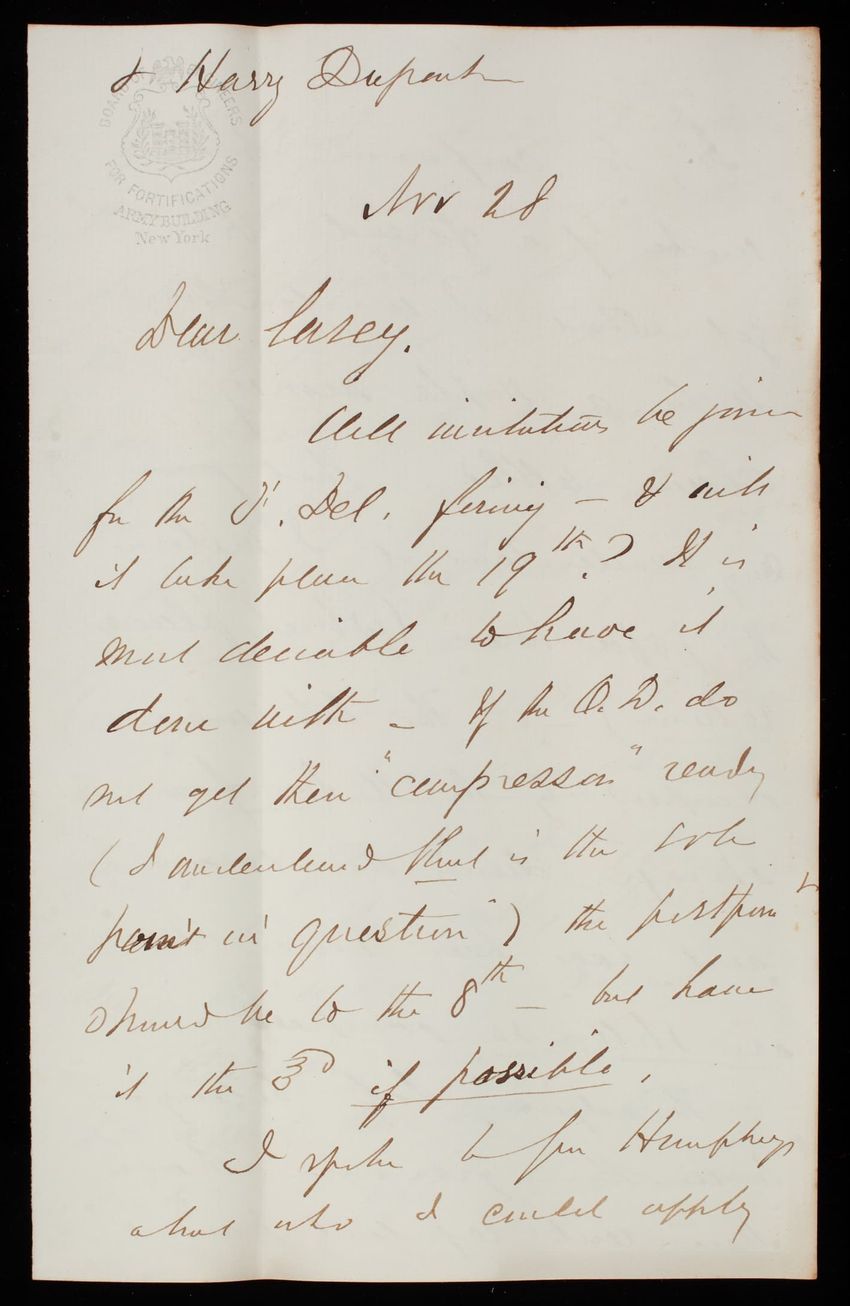 & Harry Dupont
BOARD OF ENGINEERS
FOR FORTIFICATIONS
ARMY BUILDING
New York
Nov 28
Dear Casey.
Will invitations be given
for the Ft. Del. firing — & will
it take place the 19th.? It is
most desirable to have it
done with — If the O. D. do
not get their "compressor" ready
(I understand that is the sole
point in question") the postpont
should be to the 8th — but have
it the 3D if possible.
I spoke to Gen Humphreys
about who I could apply